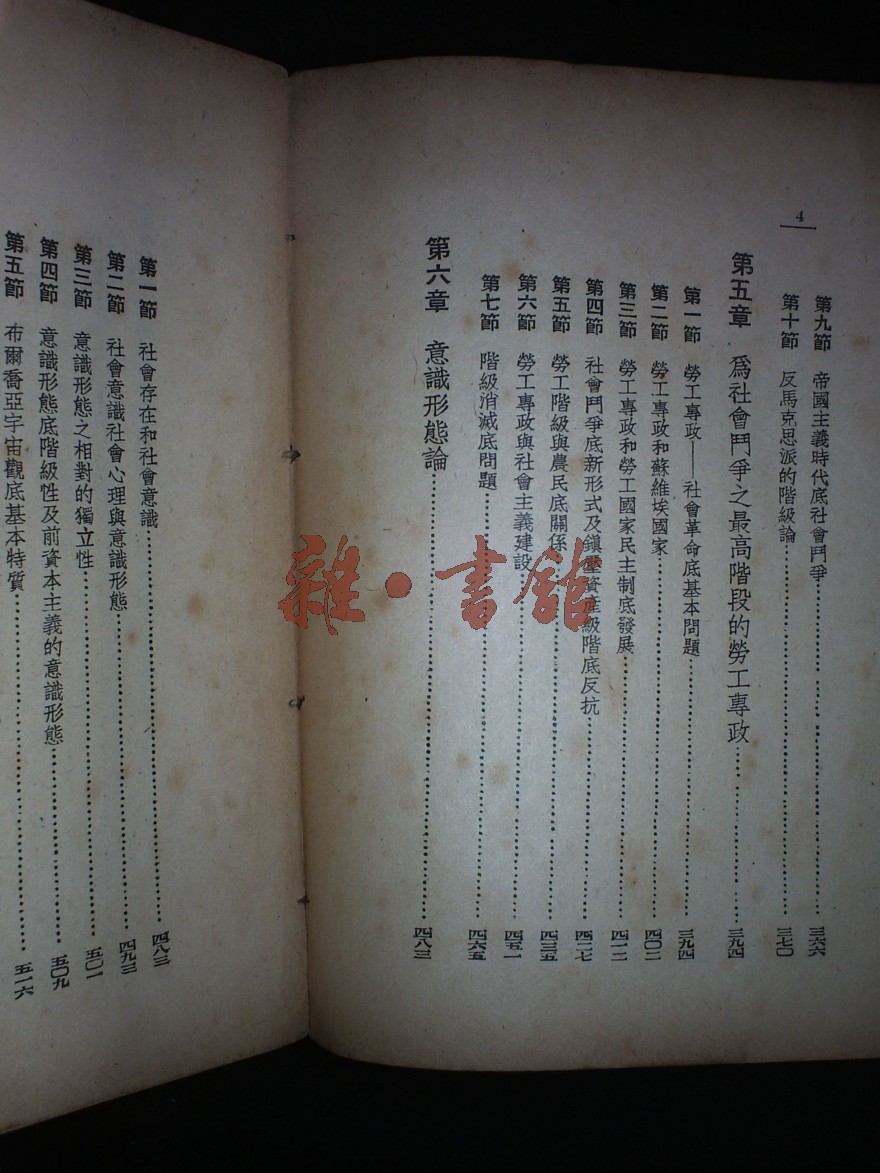 4
第九節 帝國主義時代底社會鬥爭 三六六
第十節 反馬克思派的階級論 三七〇
第五章 爲社會鬥爭之最高階段的勞工專政 三九四
第一節 勞工專政——社會革命底基本問題 三九四
第二節 勞工專政和蘇維埃國家 四〇二
第三節 勞工專政和勞工國家民主制底發展 四一二
第四節 社會鬥爭底新形式及鎮壓資產級階底反抗 四二七
第五節 勞工階級與農民底關係 四三五
第六節 勞工專政與社會主義建設 四五一
第七節 階級消滅底問題 四六五
第六章 意識形態論 四八三
第一節 社會存在和社會意識 四八三
第二節 社會意識社會心理與意識形態 四九三
第三節 意識形態之相對的獨立性 五〇一
第四節 意識形態底階級性及前資本主義的意識形態 五〇九
第五節 布爾喬亞宇宙觀底基本特質 五一六
雜·書館